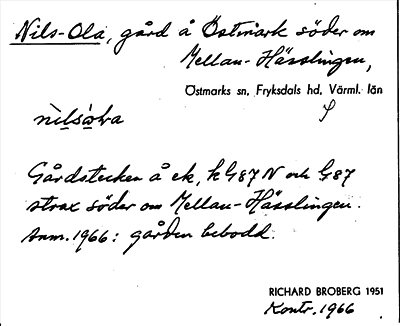 Nils-Ola, gård å Östmark söder om
Mellan-Hässlingen,
Östmarks sn, Fryksdals hd, Värml. län
nìlsòla
Gårdstecken å ek, k G87 N och G87
strax söder om Mellan-Hässlingen.
Anm. 1966: gården bebodd.
RICHARD BROBERG 1951
Kontr. 1966